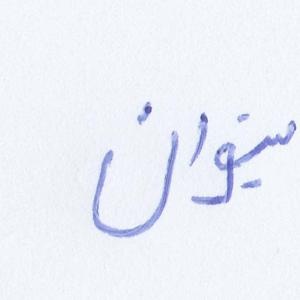 سیوان